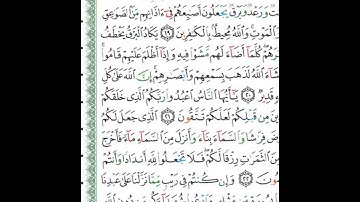 ت ورعد وبرق يجعلون أصبعهم في ءاذانهم من الصوعق
الموت والله محيط بالكفرين ١٩ يكاد البرق يخطف
هم كلما أضاء لهم مشوا فيه وإذا أظلم عليهم قاموا
شاء الله لذهب بسمعهم وأبصرهم إن الله على كل
قدير ٢٠ يأيها الناس اعبدوا ربكم الذي خلقكم
من قبلكم لعلكم تتقون ٢١ الذي جعل لكم
ض فرشا والسماء بناء وأنزل من السماء ماء فأخرج
من الثمرت رزقا لكم فلا تجعلوا لله أندادا وأنتم
ون ٢٢ وإن كنتم في ريب مما نزلنا على عبدنا